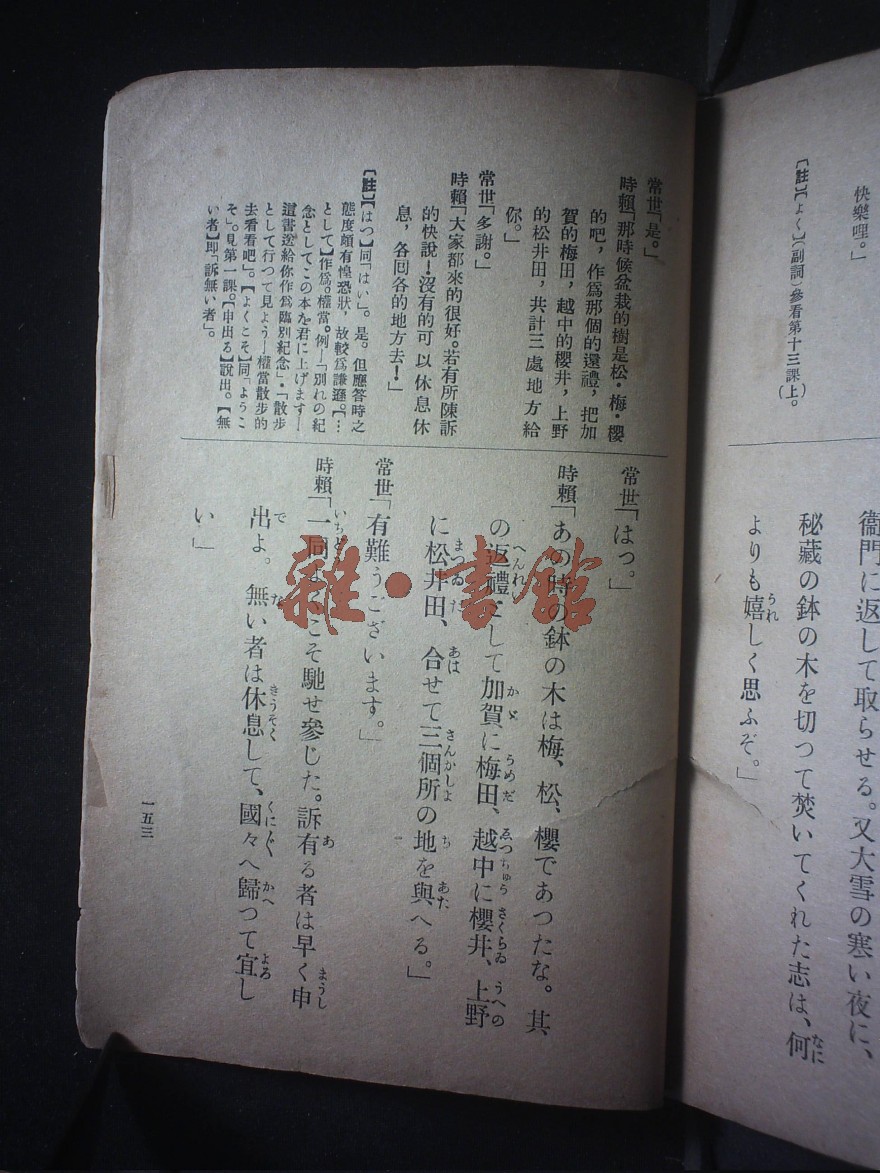 快樂哩。」
【註】【よく】(副詞)參看第十三課上。
衞門に返して取らせる。又大雪の寒い夜に、
秘藏の鉢の木を切つて焚いてくれた志は、何
よりも嬉しく思ふぞ。」
常世「是。」
時賴「那時候盆栽的樹是松・梅・櫻
的吧，作爲那個的還禮，把加
賀的梅田，越中的櫻井，上野
的松井田，共計三處地方給
你。」
常世「多謝。」
時賴「大家都來的很好。若有所陳訴
的快說！沒有的可以休息休
息，各囘各的地方去！」
【註】【はつ】同「はい」。是。但應答時之
態度頗有惶恐狀，故較爲謙遜。【…
として】作爲。權當。例—「別れの紀
念としてこの本を君に上げます—
這書送給你作爲臨別紀念」・「散步
として行つて見よう—權當散步的
去看看吧」。【よくこそ】同「ようこ
そ」。見第一課。【申出る】說出。【無
い者】卽「訴無い者」。
常世「はつ。」
時賴「あの時の鉢の木は梅、松、櫻であつたな。其
の返禮として加賀に梅田、越中に櫻井、上野
に松井田、合せて三個所の地を與へる。」
常世「有難うございます。」
時賴「一同よくこそ馳せ參じた。訴有る者は早く申
出よ。無い者は休息して、國々へ歸つて宜し
い」
一五三
雜・書館